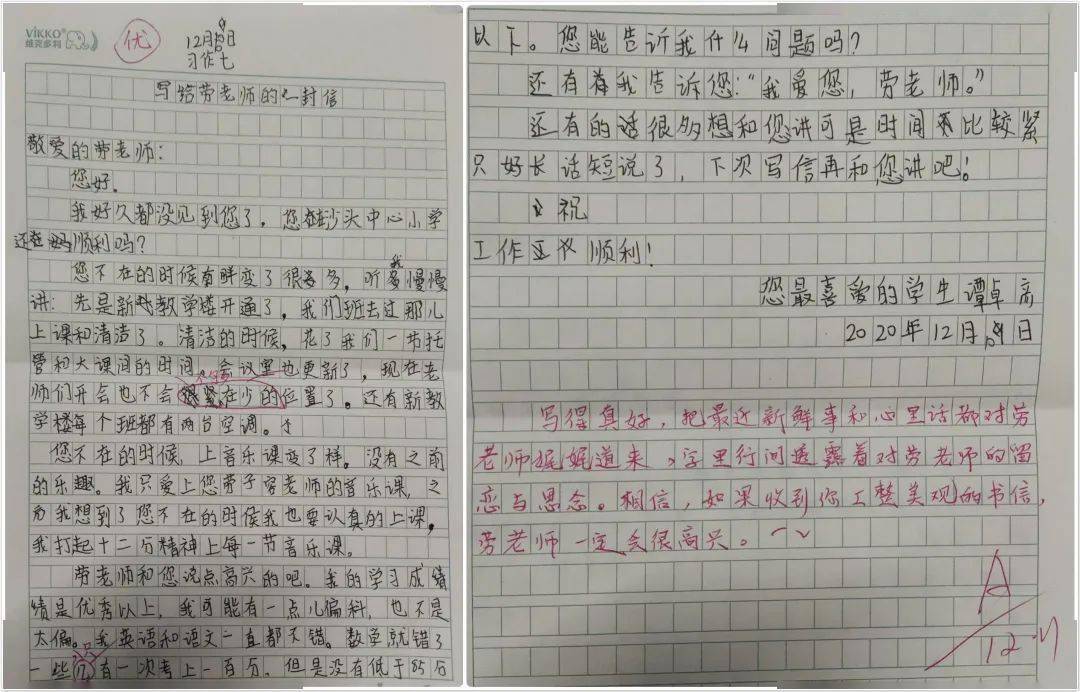 VIKKO
维克多利
优
12月日
习作七
写给劳老师的一封信
敬爱的劳老师:
您好。
我好久都没见到您了。您在沙头中心小学
还在吗顺利吗?
您不在的时候有鲜变了很多,听我慢慢
讲:先是新教学楼开通了,我们班去过那儿
上课和清洁了。清洁的时候,花了我们一节托
管和大课间的时间。会议室也更新了,现在老
师们开会也不会在少的位置了。还有新教
学楼每个班都有两台空调。
您不在的时候,上音乐课变了样。没有之前
的乐趣。我只爱上您劳老师的音乐课,之
为我想到了您不在的时候我也要认真的上课,
我打起十二分精神上每一节音乐课。
劳老师和您说点高兴的吧。我的学习成绩
绩是优秀以上,我可能有一点儿偏科,也不是
太偏。我英语和语文一直都不错。数学就错了
一些只有一次考上一百分。但是没有低于85分
以下。您能告诉我什么问题吗?
还有有我告诉您:“我爱您,劳老师。”
还有的话很多想和您讲可是时间比较紧
只好长话短说了,下次写信再和您讲吧!
祝
工作顺利!
您最喜爱的学生谭卓高
2020年12月日
写得真好,把最近新鲜事和心里话都对劳
老师娓娓道来,字里行间透露着对劳老师的留
恋与思念。相信,如果收到你工整美观的书信,
劳老师一定会很高兴。
A
12.4